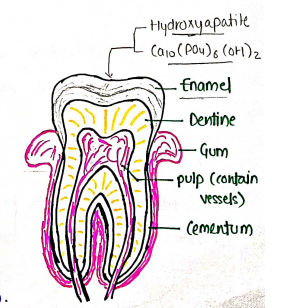 Hydroxyapatite
Ca10(PO4)6(OH)2
Enamel
Dentine
Gum
pulp (contain
vessels)
Cementum